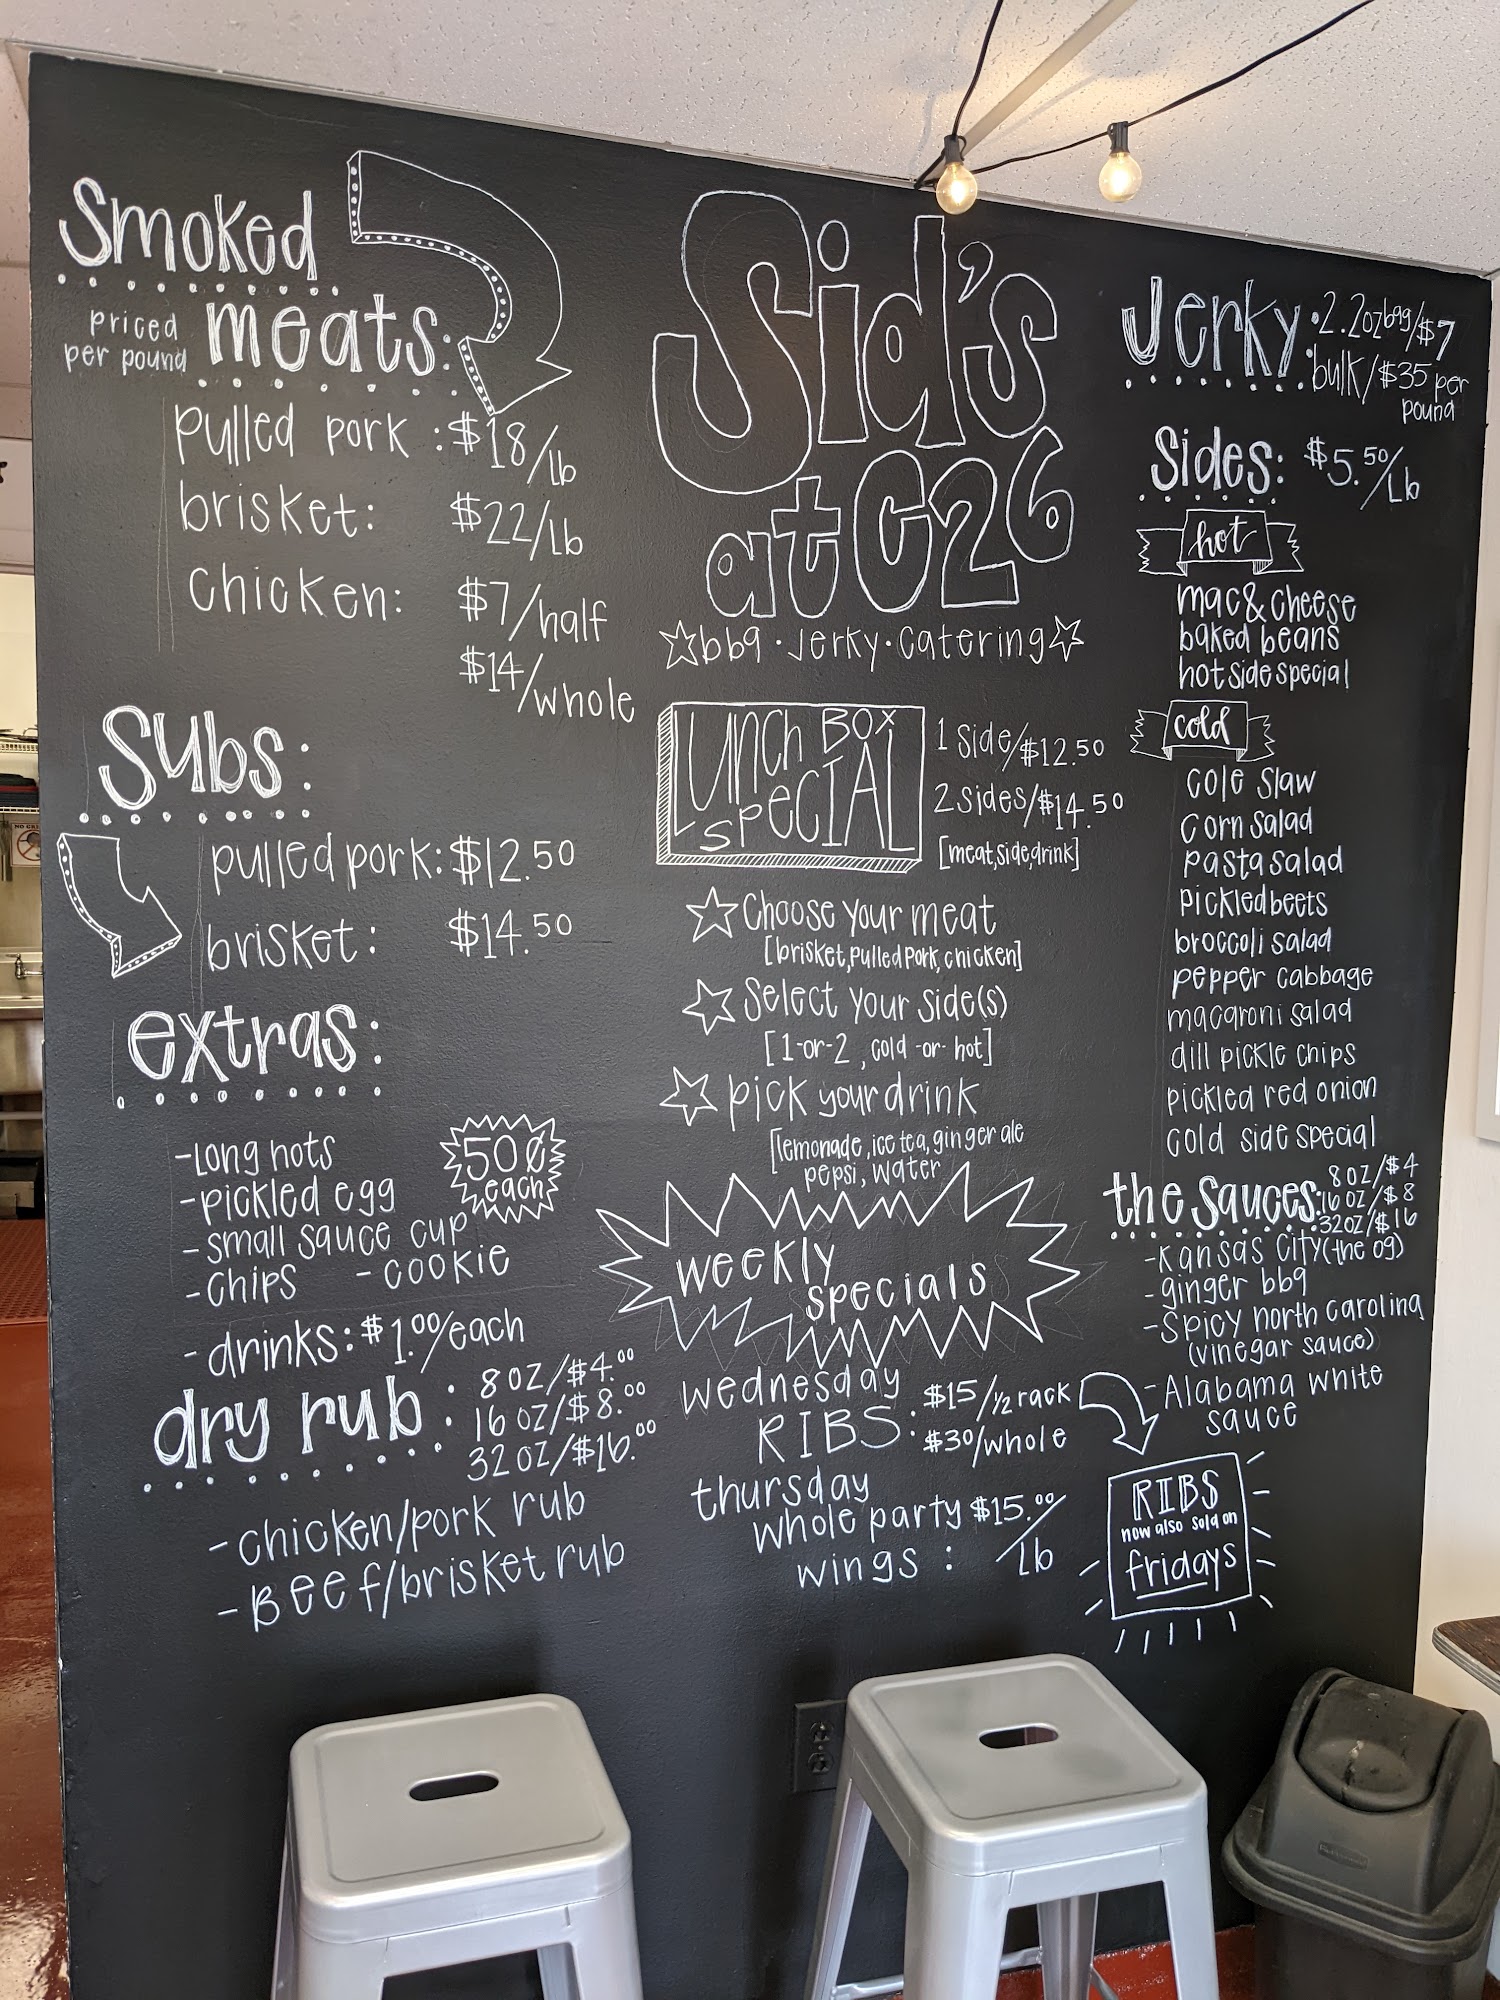 Smoked
meats:
priced
per pound
pulled pork: $18/lb
brisket: $22/lb
chicken: $7/half
$14/whole
Subs:
pulled pork: $12.50
brisket: $14.50
extras:
-Long hots
-pickled egg
-small sauce cup
-chips -cookie
50¢
each
-drinks: $1.00/each
dry rub: 8oz/$4.00
16oz/$8.00
32oz/$16.00
-chicken/pork rub
-Beef/brisket rub
Sid's
at C26
bbq · Jerky · Catering
Lunch Box
Special
1 side/$12.50
2 sides/$14.50
[meat, side, drink]
Choose your meat
[brisket, pulled pork, chicken]
Select your side(s)
[1-or-2, cold -or- hot]
pick your drink
[lemonade, ice tea, ginger ale
pepsi, water
weekly
specials
wednesday
RIBS: $15/½ rack
$30/whole
thursday
whole party $15.00/lb
wings:
Jerky: 2.2oz bag/$7
bulk/$35 per
pound
Sides: $5.50/Lb
hot
mac & cheese
baked beans
hot side special
cold
cole slaw
corn salad
pasta salad
pickled beets
broccoli salad
pepper cabbage
macaroni salad
dill pickle chips
pickled red onion
cold side special
the Sauces: 8oz/$4
16oz/$8
32oz/$16
-Kansas City (the og)
-ginger bbq
-Spicy north Carolina
(vinegar sauce)
-Alabama white
sauce
RIBS
now also sold on
fridays